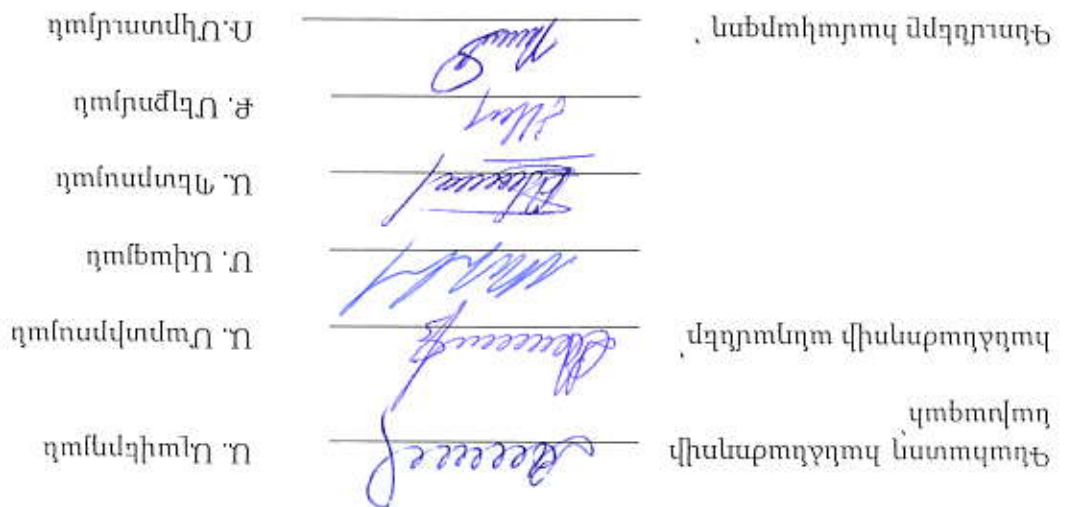 Գնահատող հանձնաժողովի
նախագահ՝ Ա. Ալավերդյան
հանձնաժողովի անդամներ՝ Ա. Մարտիրոսյան
Մ. Ավագյան
Ա. Պետրոսյան
Ք. Մելքումյան
Գնումները համակարգող՝ Ռ.Մկրտումյան